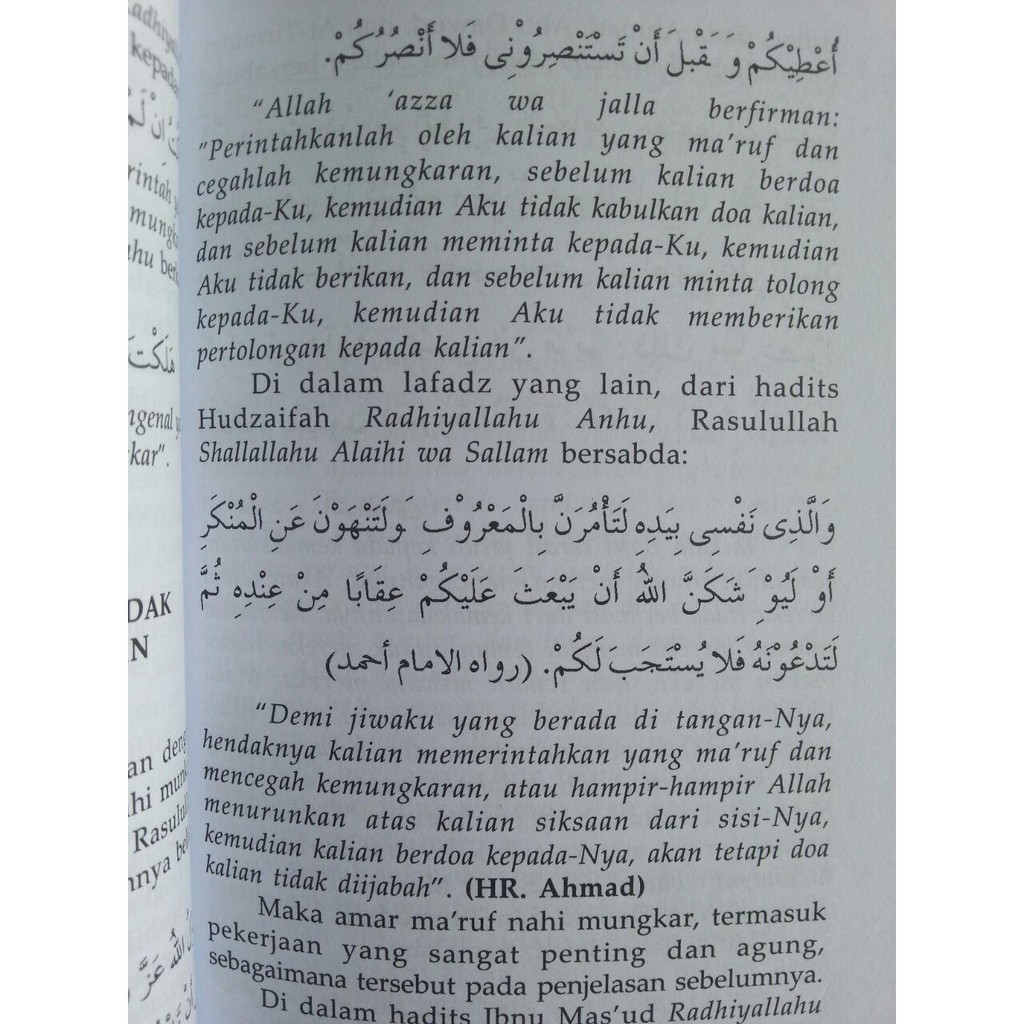 أُعْطِيْكُمْ وَ َقَبْلَ أَنْ تَسْتَنْصِرُوْنِى فَلا أَنْصُرُكُمْ.
"Allah 'azza wa jalla berfirman:
"Perintahkanlah oleh kalian yang ma'ruf dan
cegahlah kemungkaran, sebelum kalian berdoa
kepada-Ku, kemudian Aku tidak kabulkan doa kalian,
dan sebelum kalian meminta kepada-Ku, kemudian
Aku tidak berikan, dan sebelum kalian minta tolong
kepada-Ku, kemudian Aku tidak memberikan
pertolongan kepada kalian".
Di dalam lafadz yang lain, dari hadits
Hudzaifah Radhiyallahu Anhu, Rasulullah
Shallallahu Alaihi wa Sallam bersabda:
وَالَّذِى نَفْسِى بِيَدِهِ لَتَأْمُرَنَّ بِالْمَعْرُوْفِ َولَتَنْهَوْنَ عَنِ الْمُنْكَرِ
أَوْ لَيُوْ َشَكَنَّ اللهُ أَنْ يَبْعَثَ عَلَيْكُمْ عِقَابًا مِنْ عِنْدِهِ ثُمَّ
لَتَدْعُوْنَهُ فَلا يُسْتَجَبَ لَكُمْ. (رواه الامام أحمد)
"Demi jiwaku yang berada di tangan-Nya,
hendaknya kalian memerintahkan yang ma'ruf dan
mencegah kemungkaran, atau hampir-hampir Allah
menurunkan atas kalian siksaan dari sisi-Nya,
kemudian kalian berdoa kepada-Nya, akan tetapi doa
kalian tidak diijabah". (HR. Ahmad)
Maka amar ma'ruf nahi mungkar, termasuk
pekerjaan yang sangat penting dan agung,
sebagaimana tersebut pada penjelasan sebelumnya.
Di dalam hadits Ibnu Mas'ud Radhiyallahu